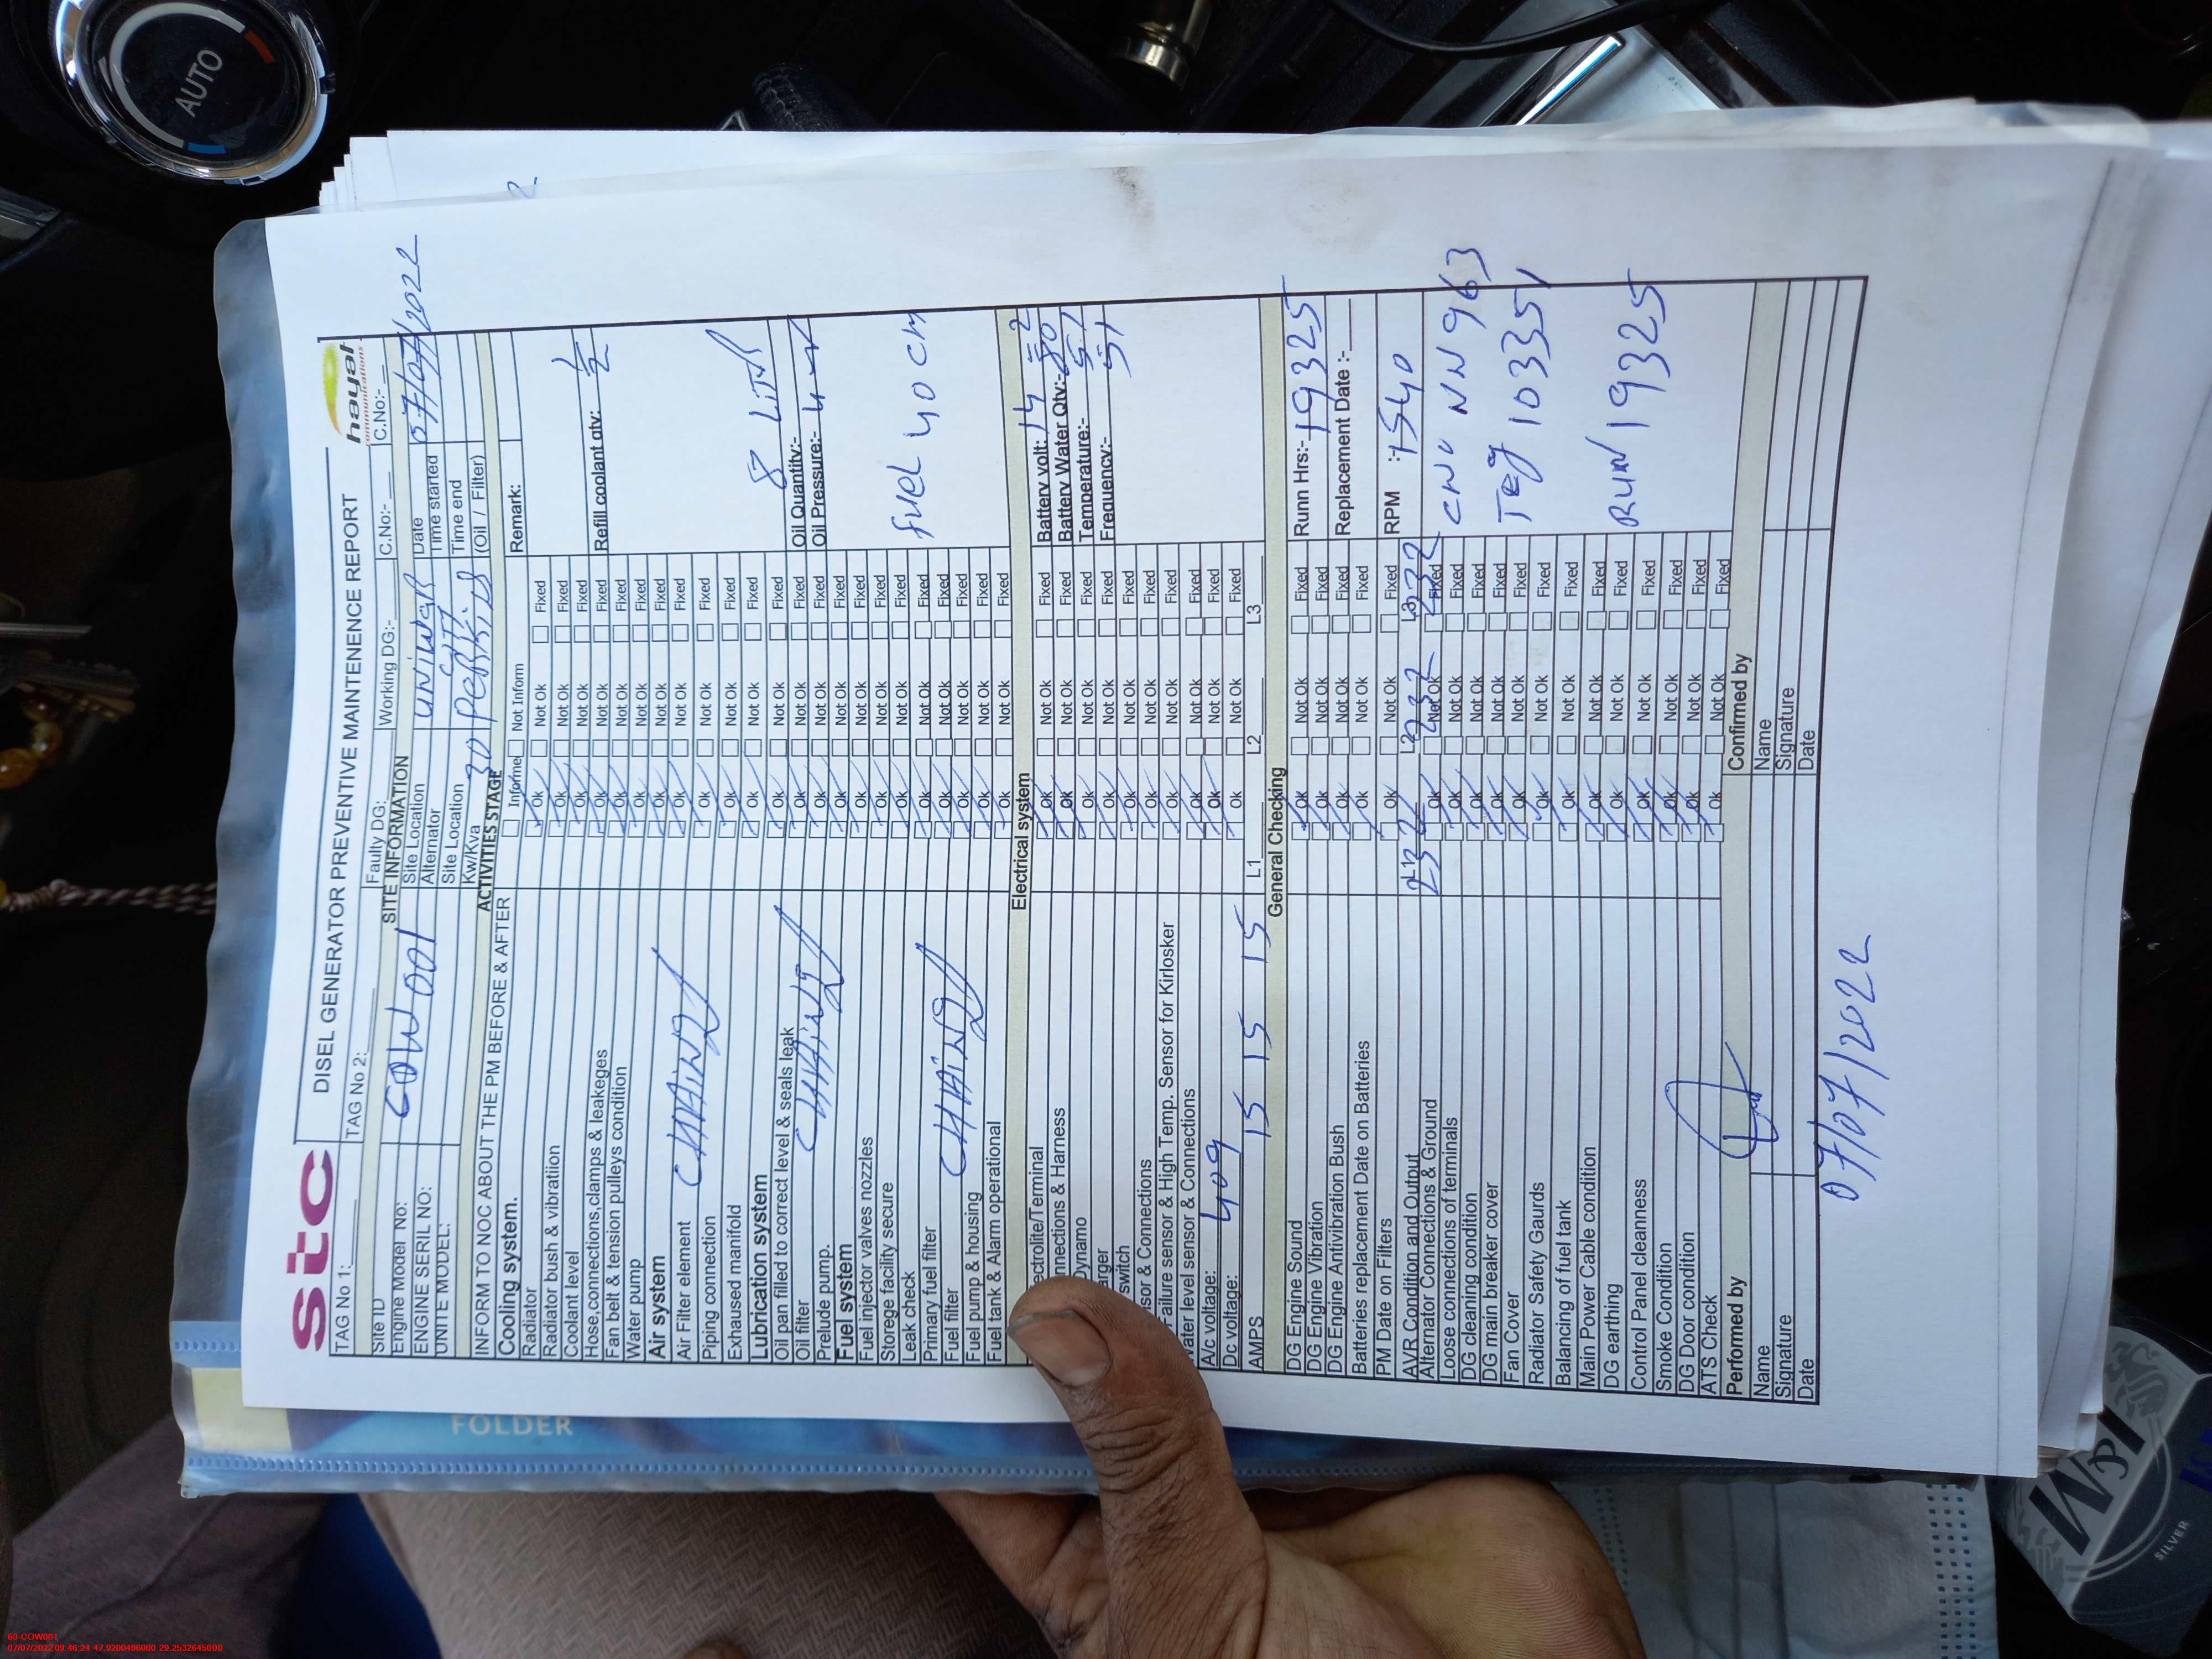 stc
DISEL GENERATOR PREVENTIVE MAINTENENCE REPORT
hayat
communications
TAG No 1:
TAG No 2:
Faulty DG:
Working DG:-
C.No:-
C.No:-
SITE INFORMATION
Site ID COW 001 Site Location Date 07/07/2022
Engine Model No: Alternator Time started
ENGINE SERIL NO: Site Location Time end
UNITE MODEL: Kw/Kva 30 (Oil / Filter)
ACTIVITIES STAGE
INFORM TO NOC ABOUT THE PM BEFORE & AFTER Informe Not Inform Remark:
Cooling system.
Radiator Ok Not Ok Fixed
Radiator bush & vibratiion Ok Not Ok Fixed
Coolant level Ok Not Ok Fixed
Hose,connections,clamps & leakeges Ok Not Ok Fixed Refill coolant qty: 1/2
Fan belt & tension pulleys condition Ok Not Ok Fixed
Water pump Ok Not Ok Fixed
Air system Ok Not Ok Fixed
Air Filter element Ok Not Ok Fixed
Piping connection Ok Not Ok Fixed
Exhaused manifold Ok Not Ok Fixed
Lubrication system Ok Not Ok Fixed
8
Oil pan filled to correct level & seals leak Ok Not Ok Fixed Oil Quantity:-
Oil filter Ok Not Ok Fixed Oil Pressure:-
Prelude pump. Ok Not Ok Fixed
Fuel system Ok Not Ok Fixed
Fuel injector valves nozzles Ok Not Ok Fixed
Storege facility secure Ok Not Ok Fixed
Leak check Ok Not Ok Fixed
Primary fuel filter Ok Not Ok Fixed fuel 40 cm
Fuel filter Ok Not Ok Fixed
Fuel pump & housing Ok Not Ok Fixed
Fuel tank & Alarm operational Ok Not Ok Fixed
Electrical system
ectrolite/Terminal Ok Not Ok Fixed Battery volt: 14
nnections & Harness Ok Not Ok Fixed Battery Water Qty:-
Dynamo Ok Not Ok Fixed Temperature:-
arger Ok Not Ok Fixed Frequency:- 51
switch Ok Not Ok Fixed
sor & Connections Ok Not Ok Fixed
Failure sensor & High Temp. Sensor for Kirlosker Ok Not Ok Fixed
ater level sensor & Connections Ok Not Ok Fixed
A/c voltage: 409 Ok Not Ok Fixed
Dc voltage: Ok Not Ok Fixed
AMPS 15 15 15 L1 L2 L3
General Checking
DG Engine Sound Ok Not Ok Fixed Runn Hrs:- 19325
DG Engine Vibration Ok Not Ok Fixed
DG Engine Antivibration Bush Ok Not Ok Fixed Replacement Date :-
Batteries replacement Date on Batteries Ok Not Ok Fixed
PM Date on Filters Ok Not Ok Fixed RPM :- 1540
AVR Condition and Output L1 232 L2 232 L3 232
Alternator Connections & Ground Ok Not Ok Fixed
Loose connections of terminals Ok Not Ok Fixed NN 963
DG cleaning condition Ok Not Ok Fixed
DG main breaker cover Ok Not Ok Fixed
Fan Cover Ok Not Ok Fixed Teg 103351
Radiator Safety Gaurds Ok Not Ok Fixed
Balancing of fuel tank Ok Not Ok Fixed
Main Power Cable condition Ok Not Ok Fixed
DG earthing Ok Not Ok Fixed Run 19325
Control Panel cleanness Ok Not Ok Fixed
Smoke Condition Ok Not Ok Fixed
DG Door condition Ok Not Ok Fixed
ATS Check Ok Not Ok Fixed
Performed by Confirmed by
Name Name
Signature Signature
Date Date
07/07/2022
FOLDER
AUTO
SILVER
60-COW001
07/07/2022 09:46:24 47.9200496000 29.2532645000